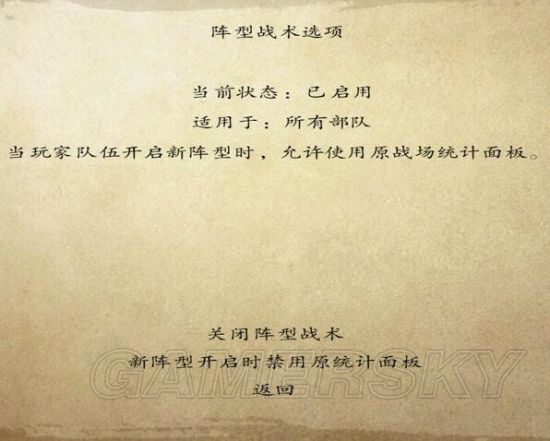 阵型战术选项
当前状态：已启用
适用于：所有部队
当玩家队伍开启新阵型时，允许使用原战场统计面板。
关闭阵型战术
新阵型开启时禁用原统计面板
返回
GAMERSKY